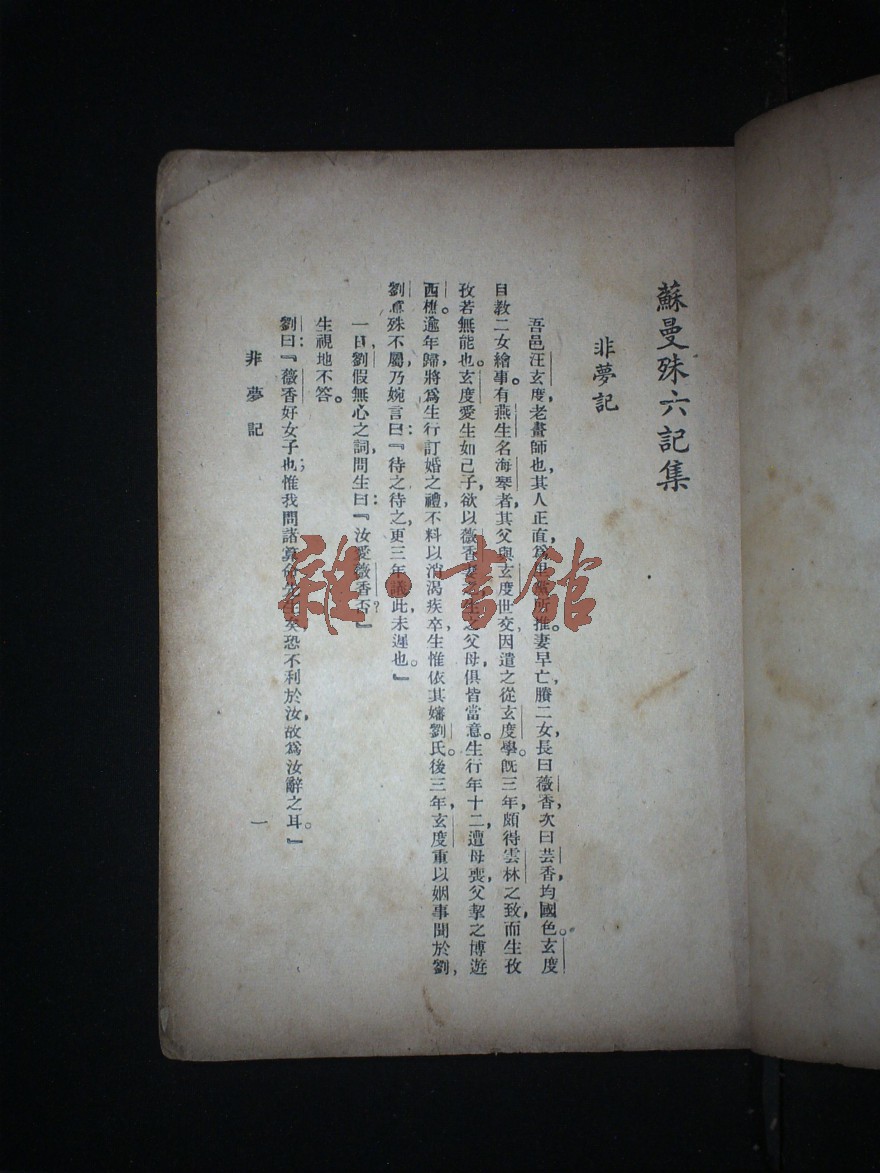 蘇曼殊六記集
非夢記
吾邑汪玄度,老畫師也,其人正直,爲里黨所推。妻早亡,賸二女,長曰薇香,次曰芸香,均國色。玄度
自教二女繪事。有燕生名海琴者,其父與玄度世交,因遣之從玄度學。既三年,頗得雲林之致,而生孜
孜若無能也。玄度愛生如己子,欲以薇香妻之。生之父母,俱皆當意。生行年十二,遭母喪,父挈之博遊
西樵。逾年歸,將爲生行訂婚之禮,不料以消渴疾卒,生惟依其嬸劉氏。後三年,玄度重以姻事聞於劉,
劉意殊不屬,乃婉言曰:『待之待之,更三年議此未遲也。』
一日,劉假無心之詞,問生曰:『汝愛薇香否?』
生視地不答。
劉曰:『薇香好女子也;惟我問諸算命先生矣,恐不利於汝,故爲汝辭之耳。』
非夢記
一
雜·書館